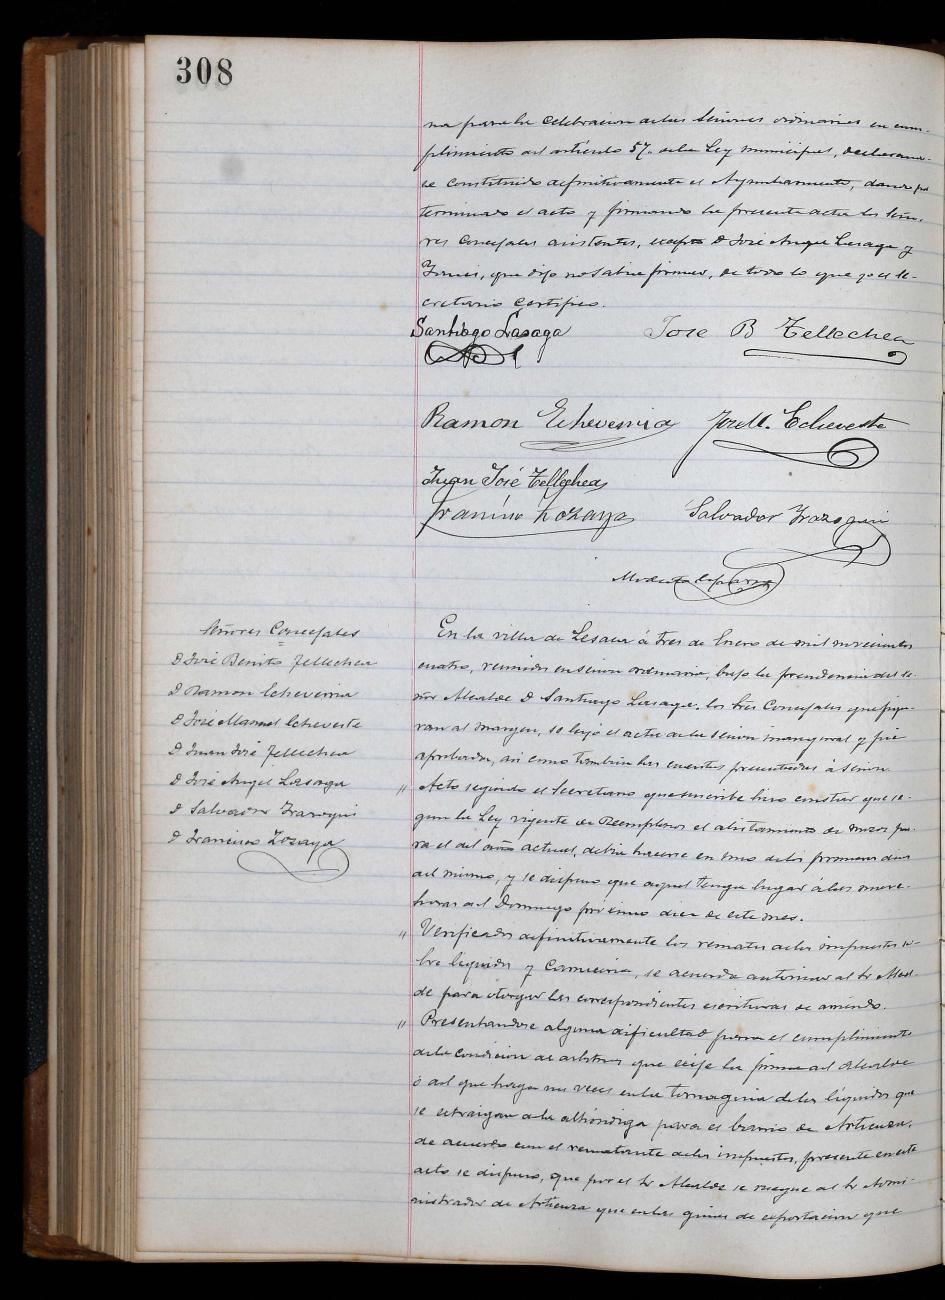 308
na para la celebracion de las sesiones ordinarias en cum-
plimiento del artículo 57 de la Ley municipal, declarando-
se constituido definitivamente el Ayuntamiento, dando por
terminado el acto y firmando la presente acta los Seño-
res Concejales asistentes, excepto D José Angel Lasaga y
que dijo no sabia firmar, de todo lo que yo el Se-
cretario certifico.
Santiago Lasaga
Jose B Tellechea
Ramon Echeverria
José M. Echeveste
Juan José Tellechea
Francisco Lozaya
Salvador Irazoqui
Modesto
Señores Concejales
D José Benito Tellechea
D Ramon Echeverria
D José Manuel Echeveste
D Juan José Tellechea
D José Angel Lasaga
D Salvador Irazoqui
D Francisco Lozaya
En la villa de Lesaca á tres de Enero de mil novecientos
cuatro, reunidos en sesion ordinaria, bajo la presidencia del Se-
ñor Alcalde D Santiago Lasaga, los Sres Concejales que figu-
ran al margen, se leyó el acta de la sesion inaugural y fué
aprobada, asi como tambien las cuentas presentadas á sesion.
" Acto seguido el Secretario que suscribe hizo constar que se-
gun la Ley vigente de Reemplazos el alistamiento de mozos pa-
ra el del año actual, debia hacerse en uno de los primeros dias
del mismo, y se dispuso que aquel tenga lugar á las nueve
horas del Domingo próximo diez de este mes.
" Verificados definitivamente los remates de los impuestos so-
bre líquidos y Carniceria, se acuerda autorizar al Sr Alcal-
de para otorgar las correspondientes escrituras de arriendo.
" Presentandose alguna dificultad para el cumplimiento
de la condicion de arbitrios que exije la firma del Alcalde
ó del que haga sus veces en la de los líquidos que
se extraigan de la alhóndiga para el barrio de
de acuerdo con el rematante de los impuestos, presente en este
acto se dispuso, que por el Sr Alcalde se ruegue al Sr Admi-
nistrador de que en las guias de exportacion que